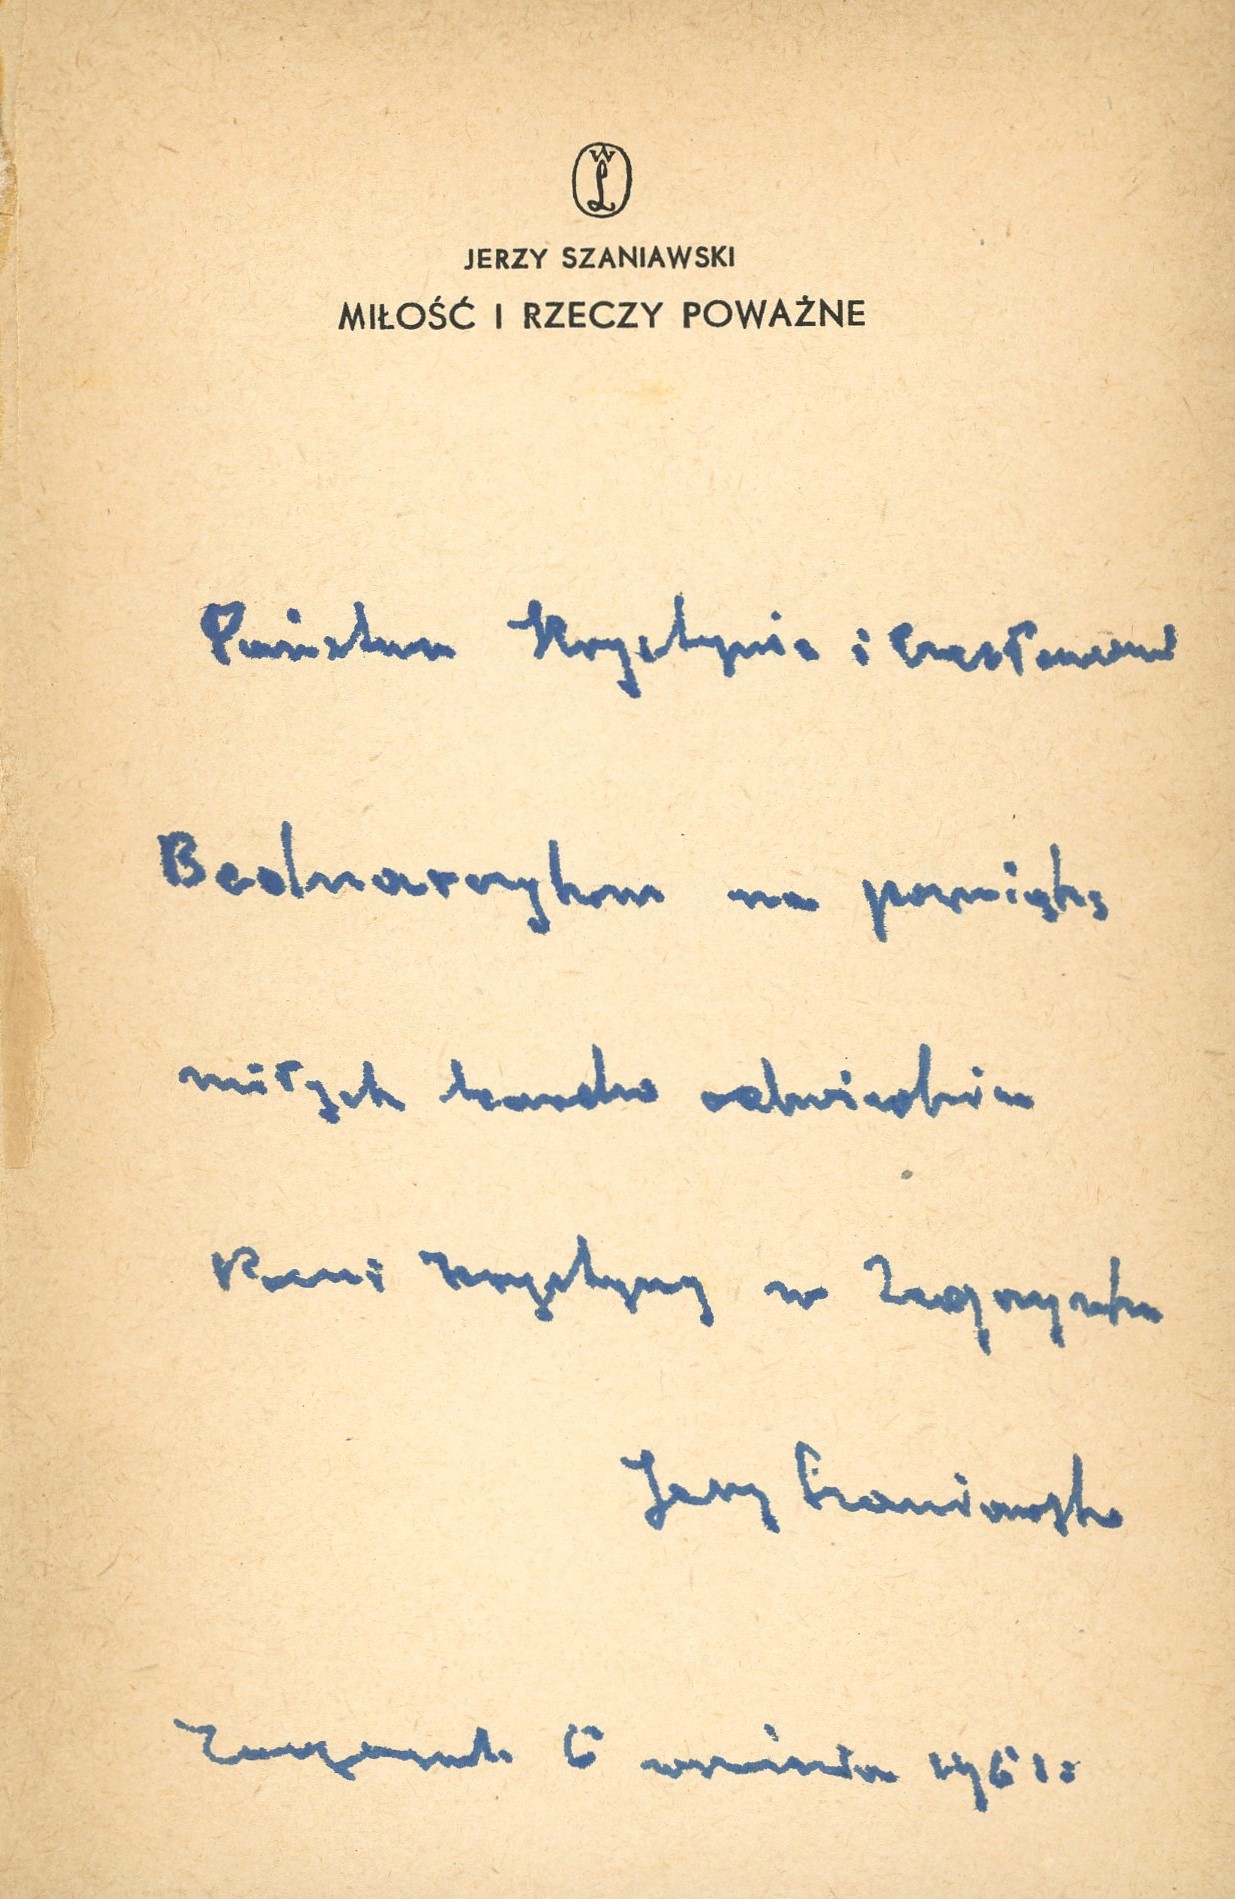 WL
JERZY SZANIAWSKI
MIŁOŚĆ I RZECZY POWAŻNE
Państwu Krystynie i Czesławowi
Bednarczykom na pamiątkę
miłych bardzo odwiedzin
Pani Krystyny w Zegrzynku
Jerzy Szaniawski
Zegrzynek 6 września 1961 r